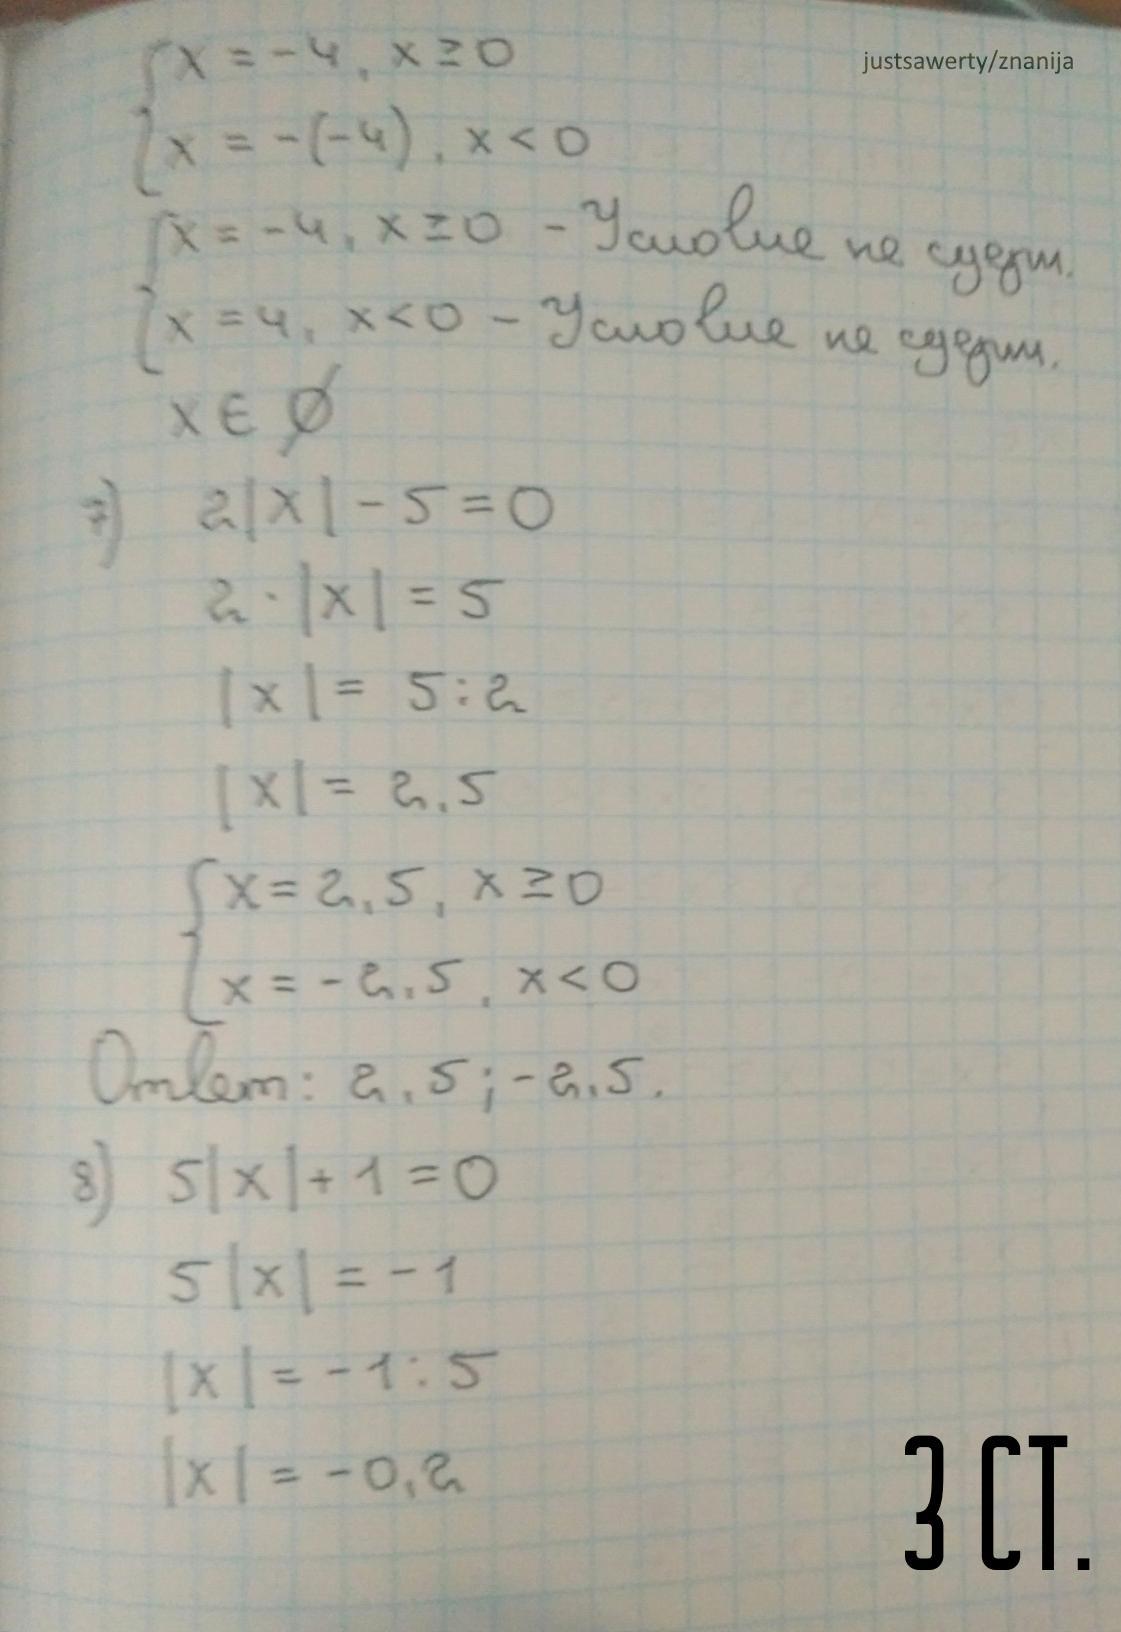 justsawerty/znanija
x = -4, x ≥ 0
x = -(-4), x < 0
x = -4, x ≥ 0 - Условие не
x = 4, x < 0 - Условие не
x ∈ ∅
7) 2|x| - 5 = 0
2 · |x| = 5
|x| = 5 : 2
|x| = 2,5
x = 2,5, x ≥ 0
x = -2,5, x < 0
Ответ: 2,5; -2,5.
8) 5|x| + 1 = 0
5|x| = -1
|x| = -1 : 5
|x| = -0,2
3 СТ.